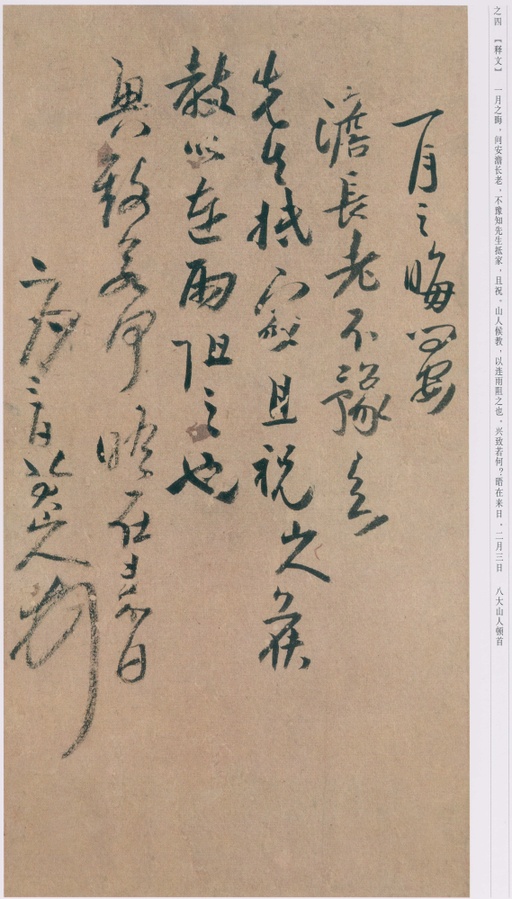 之四 【释文】 一月之晦，问安澹长老，不豫知先生抵家，且祝。山人候教，以连雨阻之也。兴致若何？晤在来日，二月三日 八大山人顿首
一月之晦问安
澹長老不豫知
先生抵家且祝山人候
教以连雨阻之也
興致若何晤在来日
二月三日八大山人顿首